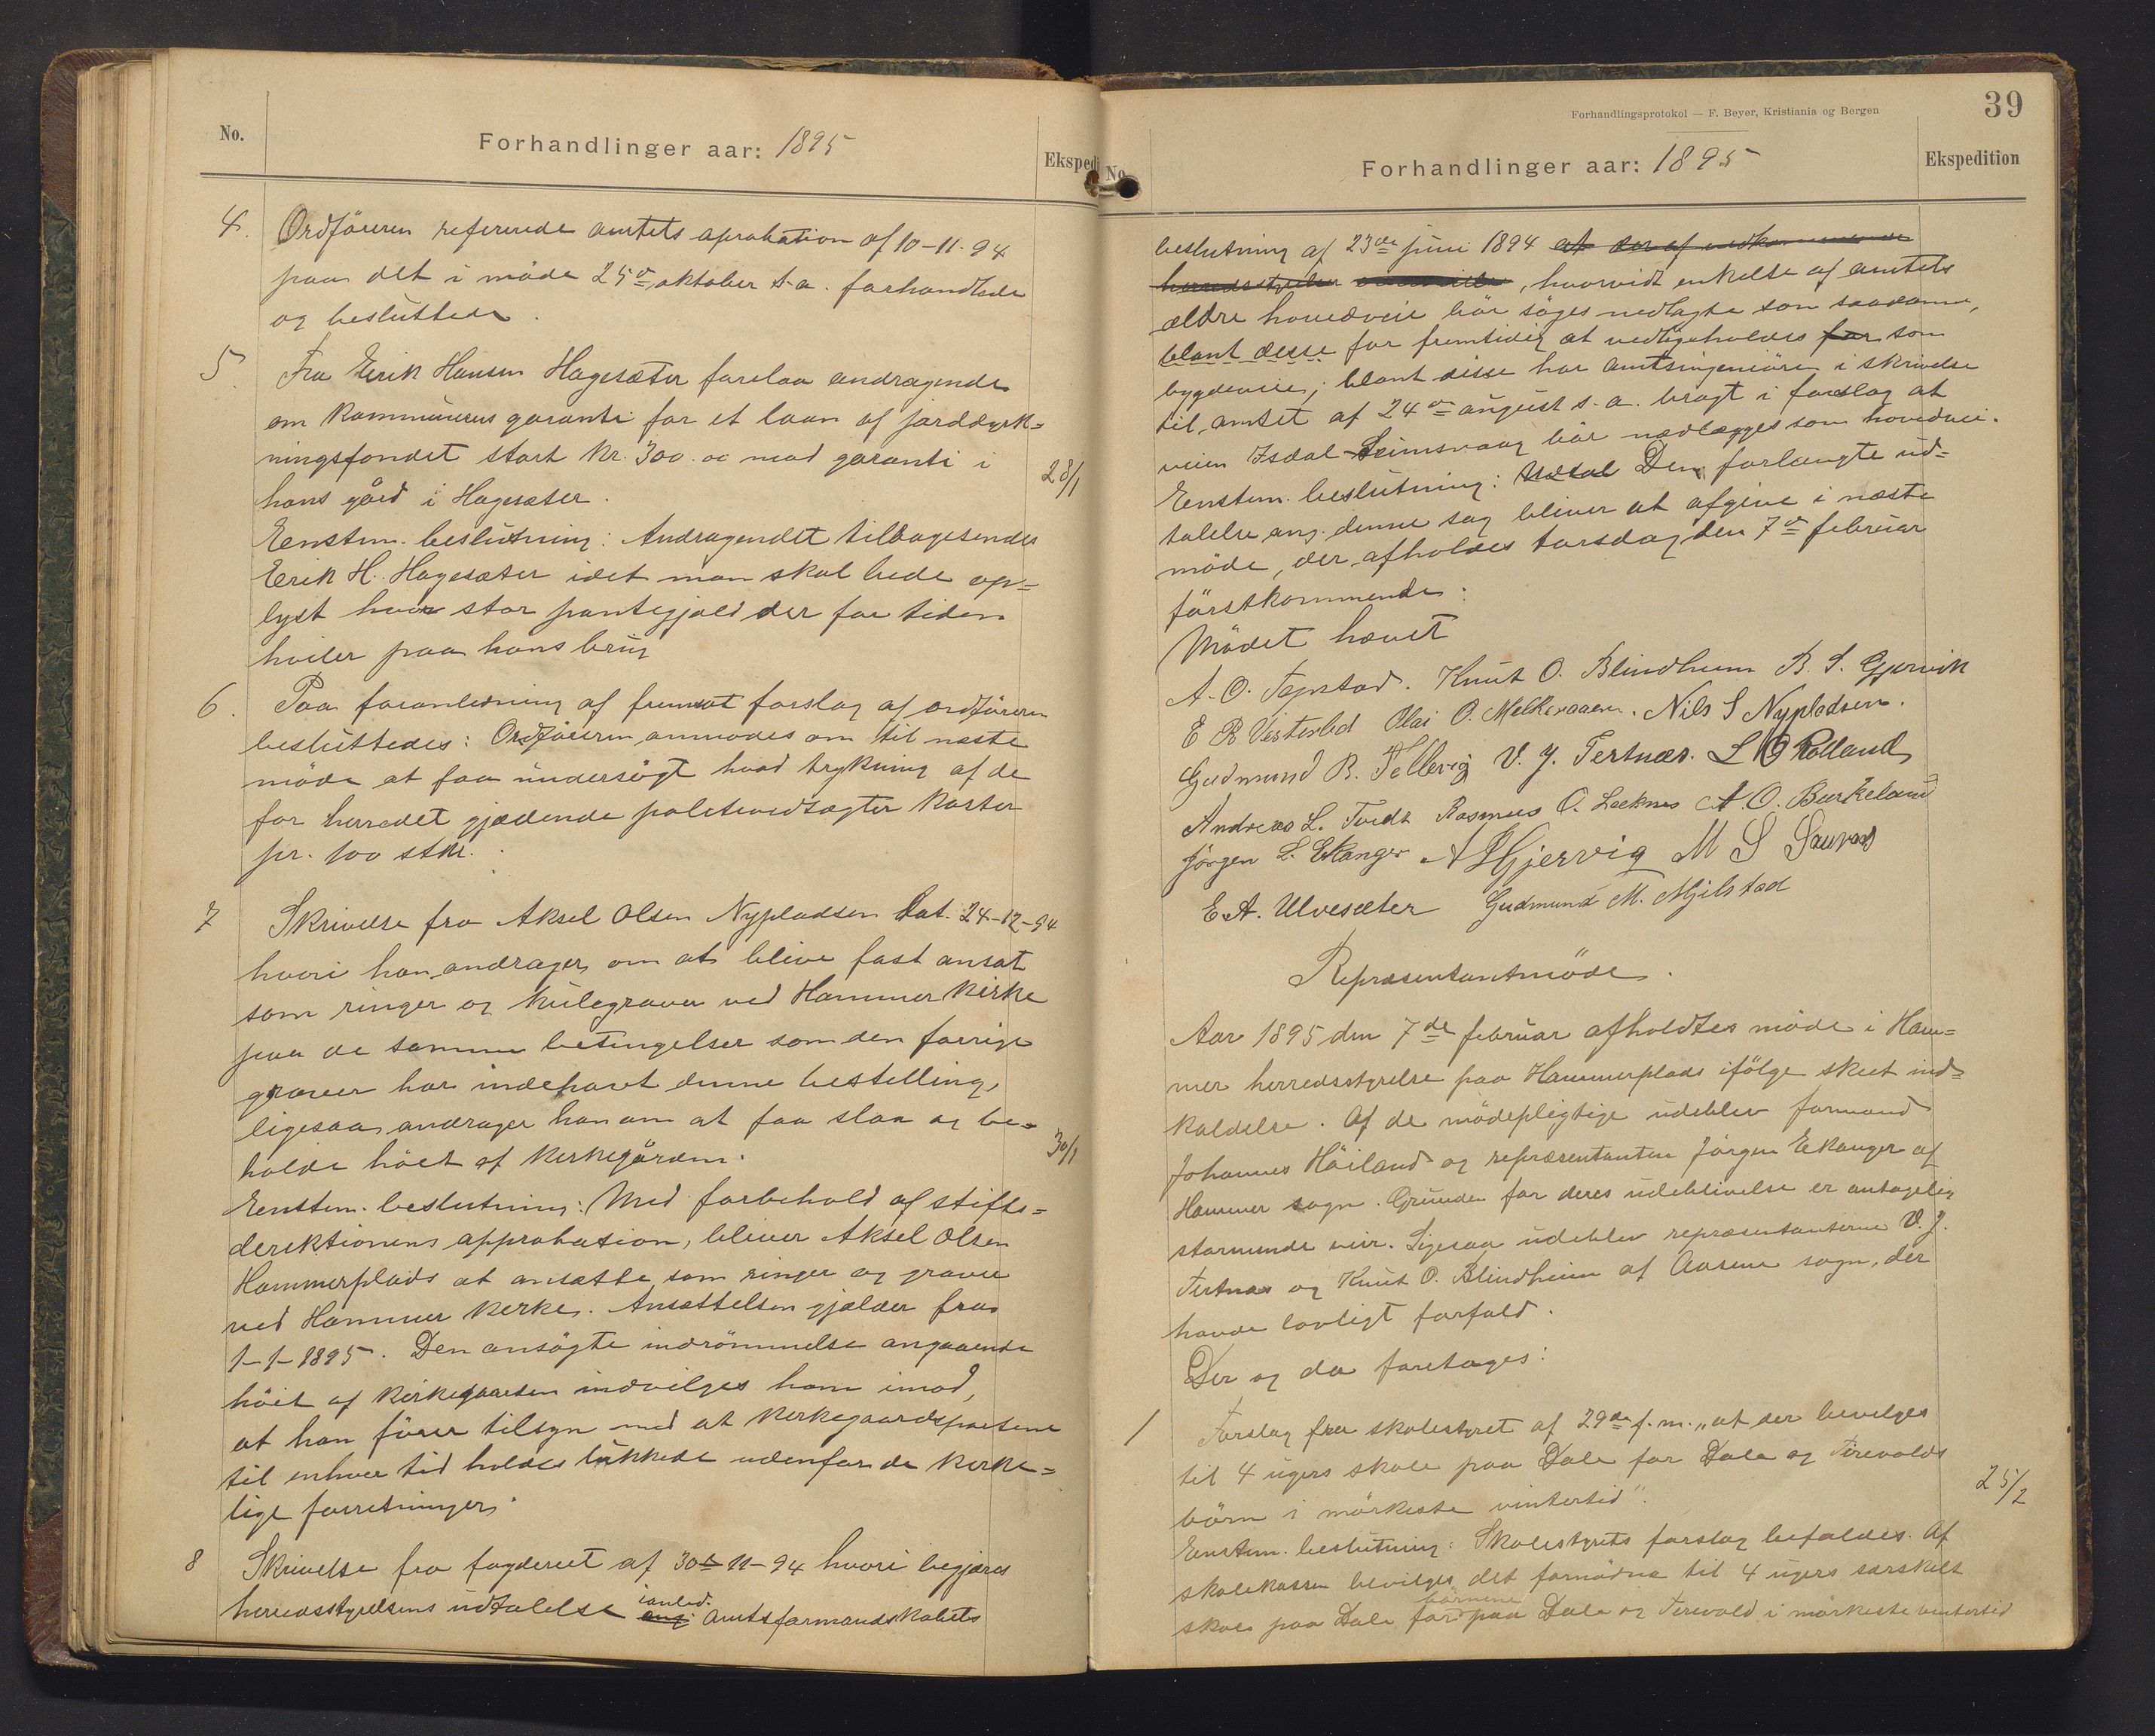 No.
Forhandlinger aar: 1895
Ekspedi
4. Ordföreren refererede amtets aprobation af 10-11-94
paa det i möde 25de oktober s.a. forhandlede
og besluttede.
5. Fra Eirik Hansen Hagesæter forelaa andragende
om kommunens garanti for et laan af jorddyrk=
ningsfondet stort kr. 300.oo mod garanti i
hans gård i Hagesæter.
28/1
Eenstem. beslutning: Andragendet tilbagesendes
Eerik H. Hagesæter idet man skal bede op=
lyst hvor stor pantegjæld der for tiden
hviler paa hans brug
6. Paa foranledning af fremsat forslag af ordföreren
besluttedes: Ordföreren anmodes om til næste
möde at faa undersögt hvad trykning af de
for herredet gjældende politivedtægter koster
pr. 100 stkr.
7 Skrivelse fra Aksel Olsen Nypladsen dat. 24-12-94
hvori han andrager om at blive fast ansat
som ringer og kulegraver ved Hammer kirke
paa de samme betingelser som den forrige
graver har indehavt denne bestilling,
ligesaa andrager han om at faa slaa og be=
holde höiet af kirkegården.
30/1
Eenstem. beslutning: Med forbehold af stifts=
derektionens approbasion, bliver Aksel Olsen
Hammerplads at ansætte som ringer og graver
ved Hammer kerke. Ansættelsen gjælder fra
1-1-1895. Den ansögte indrömmelse angaaende
höiet af kirkegaarden indvilges ham imod,
at han förer tilsyn med at kerkegaardsportene
til enhver tid holdes lukkede udenfor de kerke=
lige forretninger.
8 Skrivelse fra fogderiet af 30te 11-94 hvori begjæres
herredsstyrelsens udtalelse ianled. ang: amtsformandskabets
Forhandlingsprotokol — F. Beyer, Kristiania og Bergen
39
No.
Forhandlinger aar: 1895
Ekspedition
beslutning af 23de juni 1894 at der af vedkommende
herredsstyrelser, hvorvidt enkelte af amtets
ældre hovedveie bör söges nedlagte som saadanne,
blant desse for fremtidig at vedligeholdes for som
bygdeveie; blant disse har amtsingeniören i skrivelse
til amtet af 24de august s.a. bragt i forslag at
veien Isdal-Seimsvaag bör nedlægges som hovedvei.
Eenstem. beslutning: Den forlangte ud=
talelse ang. denne sag bliver at afgive i næste
möde, der afholdes torsdag den 7de februar
förstkommende.
Mödet hævet
A. O. Tepstad. Knut O. Blindheim B. S. Gjervik
E R Vesterlid Olai O. Melkeraaen. Nils S Nypladsen.
Gudmund R. Tellevig V. J. Tertnæs. L O Rolland
Andreas L. Tvedt Rasmus O. Leeknes A. O. Burkeland
Jörgen L. Ekanger A Hjervig M S Sauvad
E. A. Ulvesæter Gudmund M. Mjelstad
Repræsentantmöde.
Aar 1895 den 7de februar afholdtes möde i Ham=
mer herredsstyrelse paa Hammerplads ifölge skeet ind=
kaldelse. Af de mödepligtige udeblev formand
Johannes Höiland og repræsentanten Jörgen Ekanger af
Hammer sogn. Grunden for deres udeblivelse er antagelig
stormende veir. Ligesaa udeblev repræsentanterne V. J.
Tertnæs og Knut O. Blindheim af Aasene sogn, der
havde lovligt forfald.
Der og da foretoges:
1 Forslag fra skolestyret af 29de f.m. „at der bevilges
til 4 ugers skole paa Dale for Dale og Tirevolds
börn i mörkeste vintertid".
25/2
Eenstem. beslutning: Skolestyrets forslag bifaldes. Af
skolekassen bevilges det fornödne til 4 ugers særskilt
skole paa Dale for börnene paa Dale og Tirevold i mörkeste vintertid